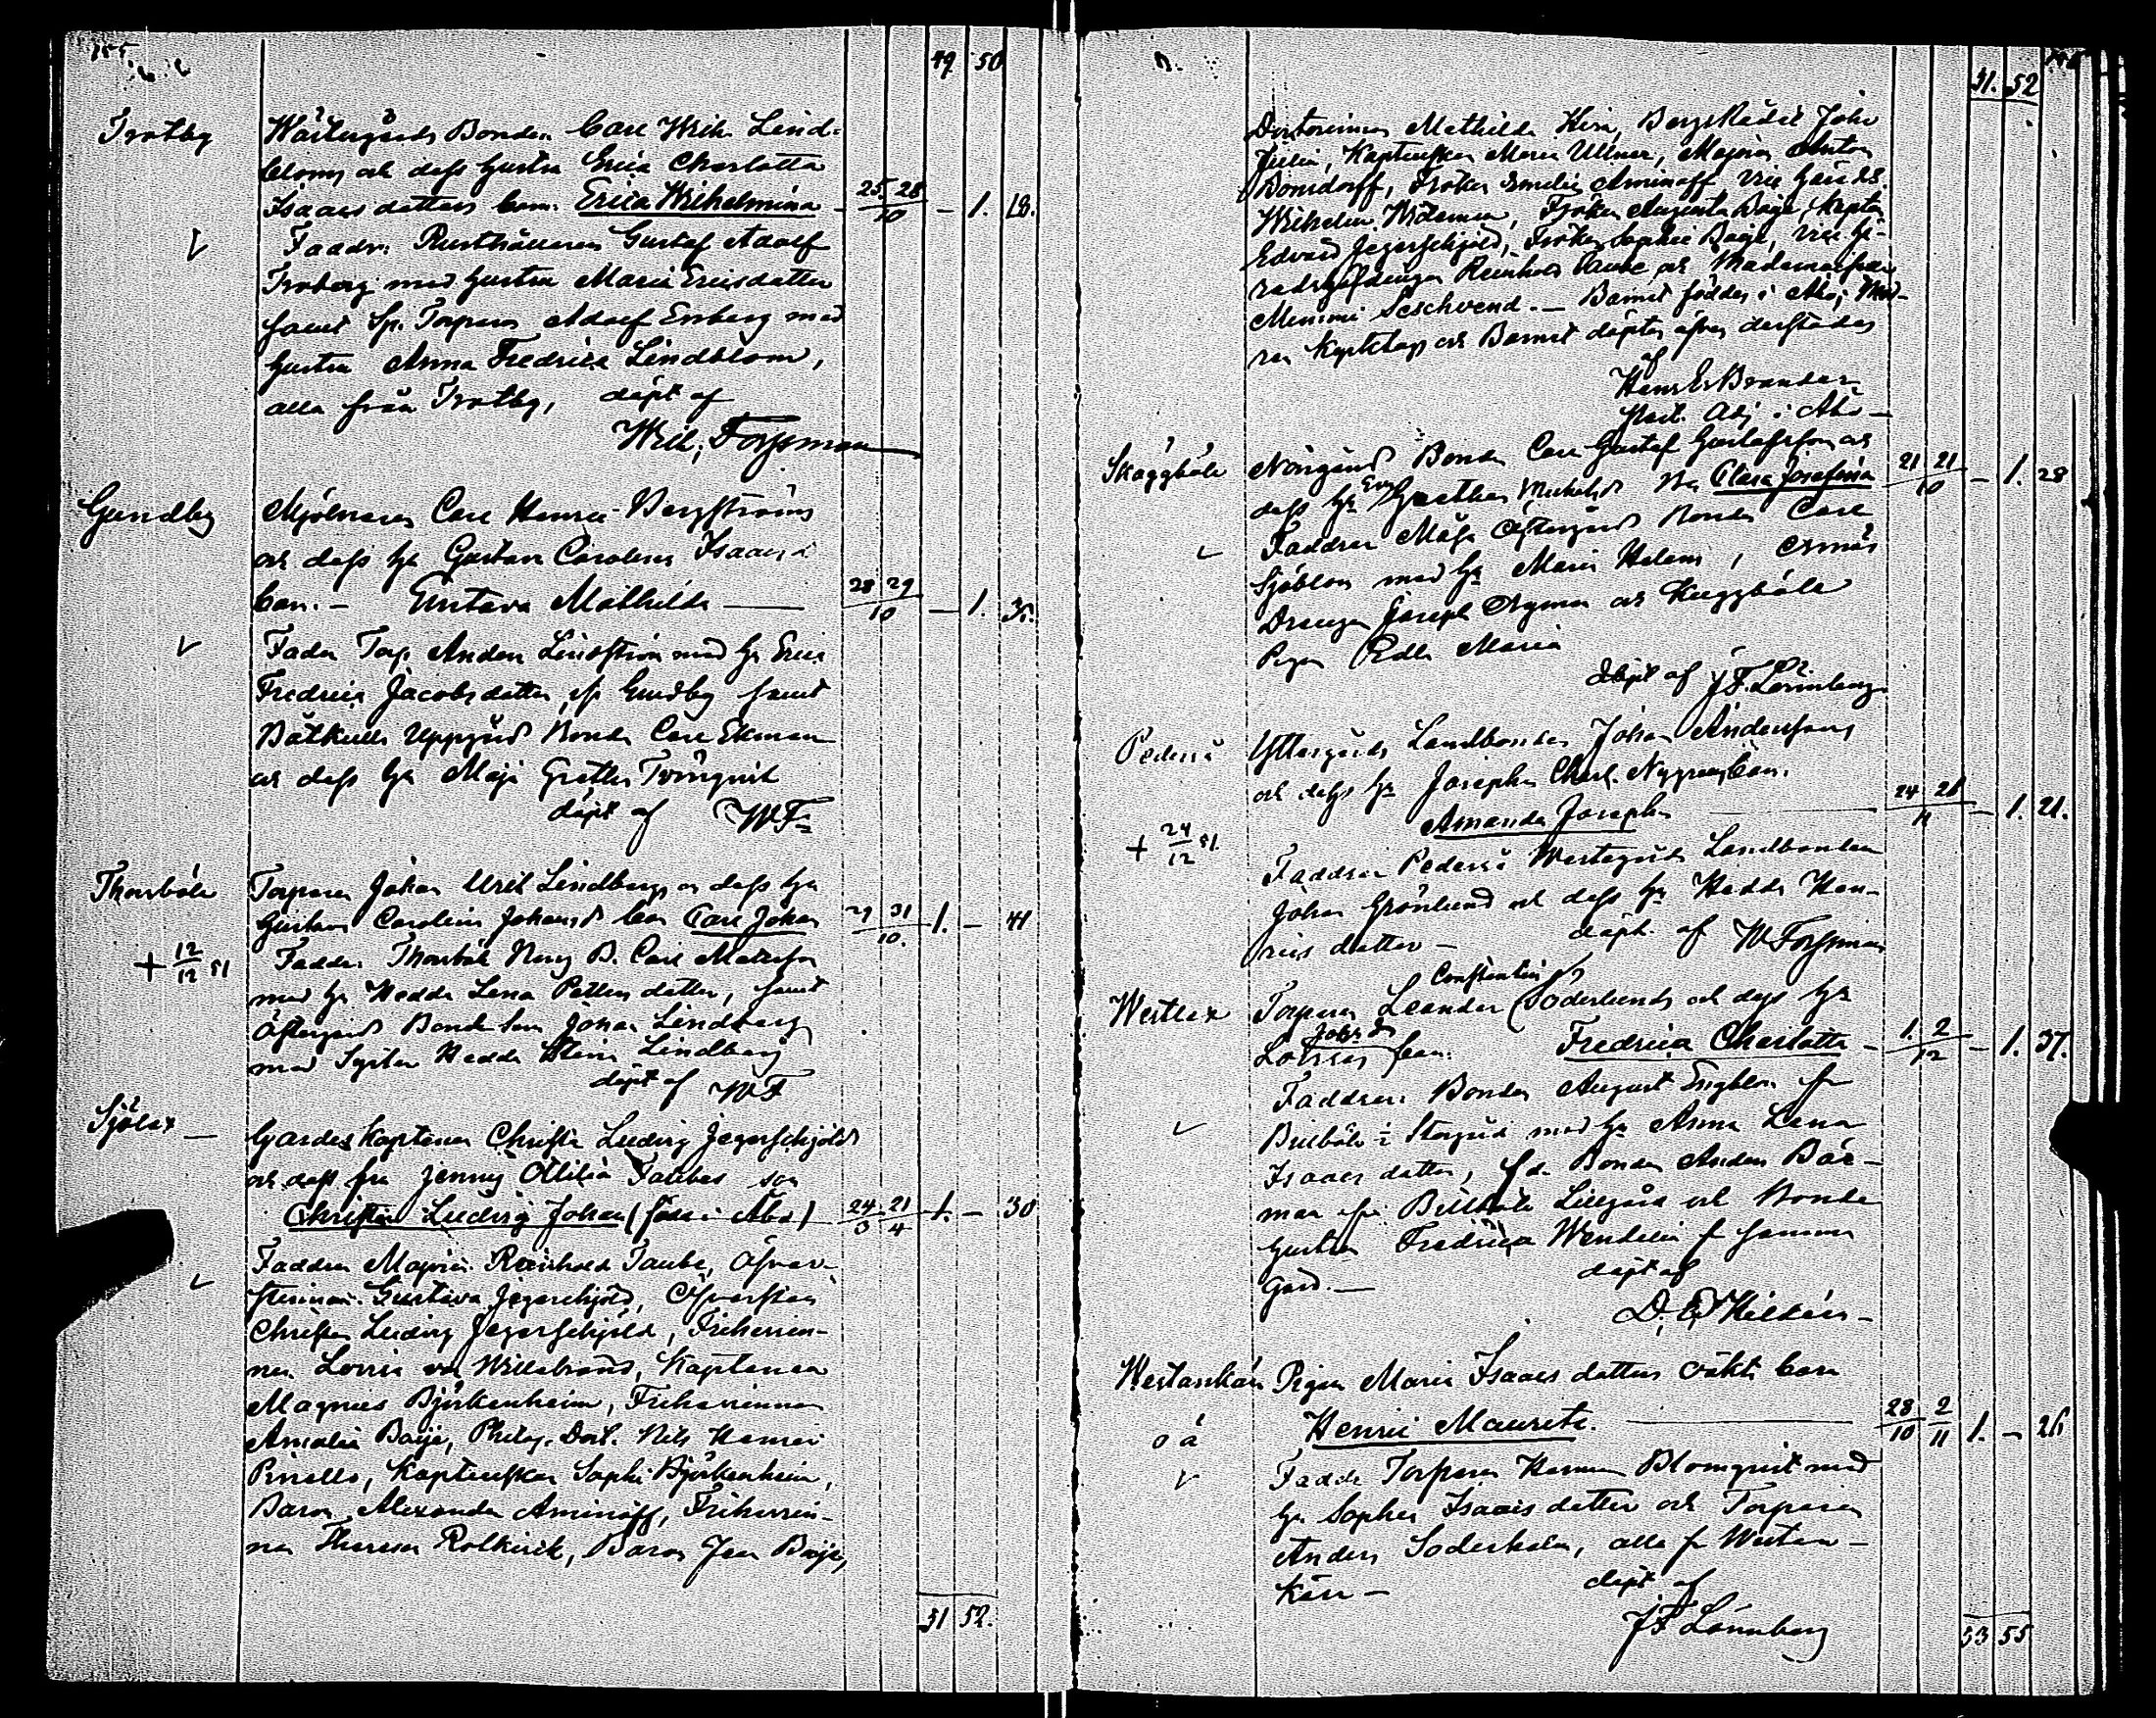 155.
49 50
Trotby
Wästergårds Bonden Carl Wilh. Lind-
bloms och dess hustru Erica Charlotta
Isaacs dotters barn. Erica Wilhelmina - 25 28 / 10 - 1. 28.
Faddr. Rusthållaren Gustaf Adolf
Troberg med hustru Maria Ericsdotter
samt Sp. Torparn Adolf Enberg med
hustru Anna Fredrica Lindblom,
alla från Trotby, döpt af
Wilh. Forssman
Gundby
Mjölnaren Carl Henric Bergströms
och dess h:u Gustava Carolina Isaacs d
barn. - Gustava Mathilda 28 29 / 10 - 1. 35.
Faddr Torp. Anders Lindström med h:u Erica
Fredrica Jacobsdotter, fr Gundby samt
Båtkulla Uppgård Bonde Carl Ekman
och dess h:u Maja Gretha Törnqvist
döpt af WF
Thorsböle
Torparen Johan Ulrik Lindbergs o dess h:u
Gustava Carolina Johansd barn Carl Johan 29 31 / 10. 1. - 41
+ 12/12 51
Faddr. Thorsböle Norrg B. Carl Matsson
med h:u Hedda Lena Petters dotter, samt
Östergård Bonde son Johan Lindberg
med Syster Hedda Stina Lindberg
döpt af WF
Sjölax -
Gardes Kaptenen Christer Ludvig Jägerschjöld
och dess fru Jenny Otilia Taubes son
Christer Ludvig Johan (född i Åbo) 24 21 / 3 4 1. - 30
Faddrar Majoren Reinhold Taube, Öfver-
stinnan Gustava Jägerschjöld, Öfversten
Christer Ludvig Jägerschjöld, Friherrin-
nan Lovisa von Willebrand, Kaptenen
Magnus Björkenheim, Friherrinnan
Amalia Boije, Philos. Doct. Nils Henric
Pinello, Kaptenskan Sophie Björkenheim,
Baron Alexander Aminoff, Friherrin-
nan Theresa Rotkirch, Baron Jean Boije,
51 52.
51. 52
Doctorinnan Mathilda Hisn, Bergsrådet John
Julin, Kaptenskan Maria Ullner, Majoren Anton
Bonsdorff, Fröken Emilie Aminoff, Vice Härads
Wilhelm Widenius, Fröken Augusta Boije, Kapten
Edvard Jägerschjöld, Fröken Sophie Boije, Vice Hä-
radshöfdingen Reinhold Taube och Mademoiselle
Mimmi Seschvend. - Barnet föddes i Åbo, Mod-
ren Kyrktogs och Barnet döptes äfven derstädes
af
Henr Er Brander
Past. Adj i Åbo -
Skäggböle
Norrgård Bonde Carl Gustaf Gustafsson och
dess h:u Eva Gretha Michelsd barn Clara Josefina 21 21 / 10 - 1. 28
Faddrar Måsa Östergård Bonde Carl
Sjöblom med h:u Maria Helena,
Drengen Joseph Nyman och Kuggböle
Pigan Edla Maria
döpt af J F. Lönnberg
Pedersö
Yttergårds Landbonden Johan Anderssons
och dess h:u Josepha Charl. Nygrens barn.
Amanda Josepha 24 28 / 11 - 1. 21.
+ 24/12 51.
Faddrar Pedersö Westergårds Landbonden
Johan Grönlund och dess h:u Hedda Hen-
rics dotter - döpt af W Forssman
Westlax
Torparen Leander Constantin Söderlunds och dess h:u
Lovisas Johsd barn. Fredrica Charlotta - 1. 2 / 12 - 1. 37.
Faddrar Bonden August Engblom fr
Billböle Storgård med h:u Anna Lena
Isaacs dotter, f.d. Bonden Anders Bäc-
man ifr Billböle Lillgård och Bonde
hustrun Fredrica Wendelin fr samma
Gård. - döpt af
D. E. Hildén -
Westanskär
Pigan Maria Isaacs dotters oäkta barn
o ä
Henric Mauritz. 28 2 / 10 11 1. - 26
Faddr Torparen Herman Blomqvist med
h:u Sophia Isaacs dotter och Torparen
Anders Söderholm, alla fr Westan-
kärr - döpt af
J F Lönnberg
53 55